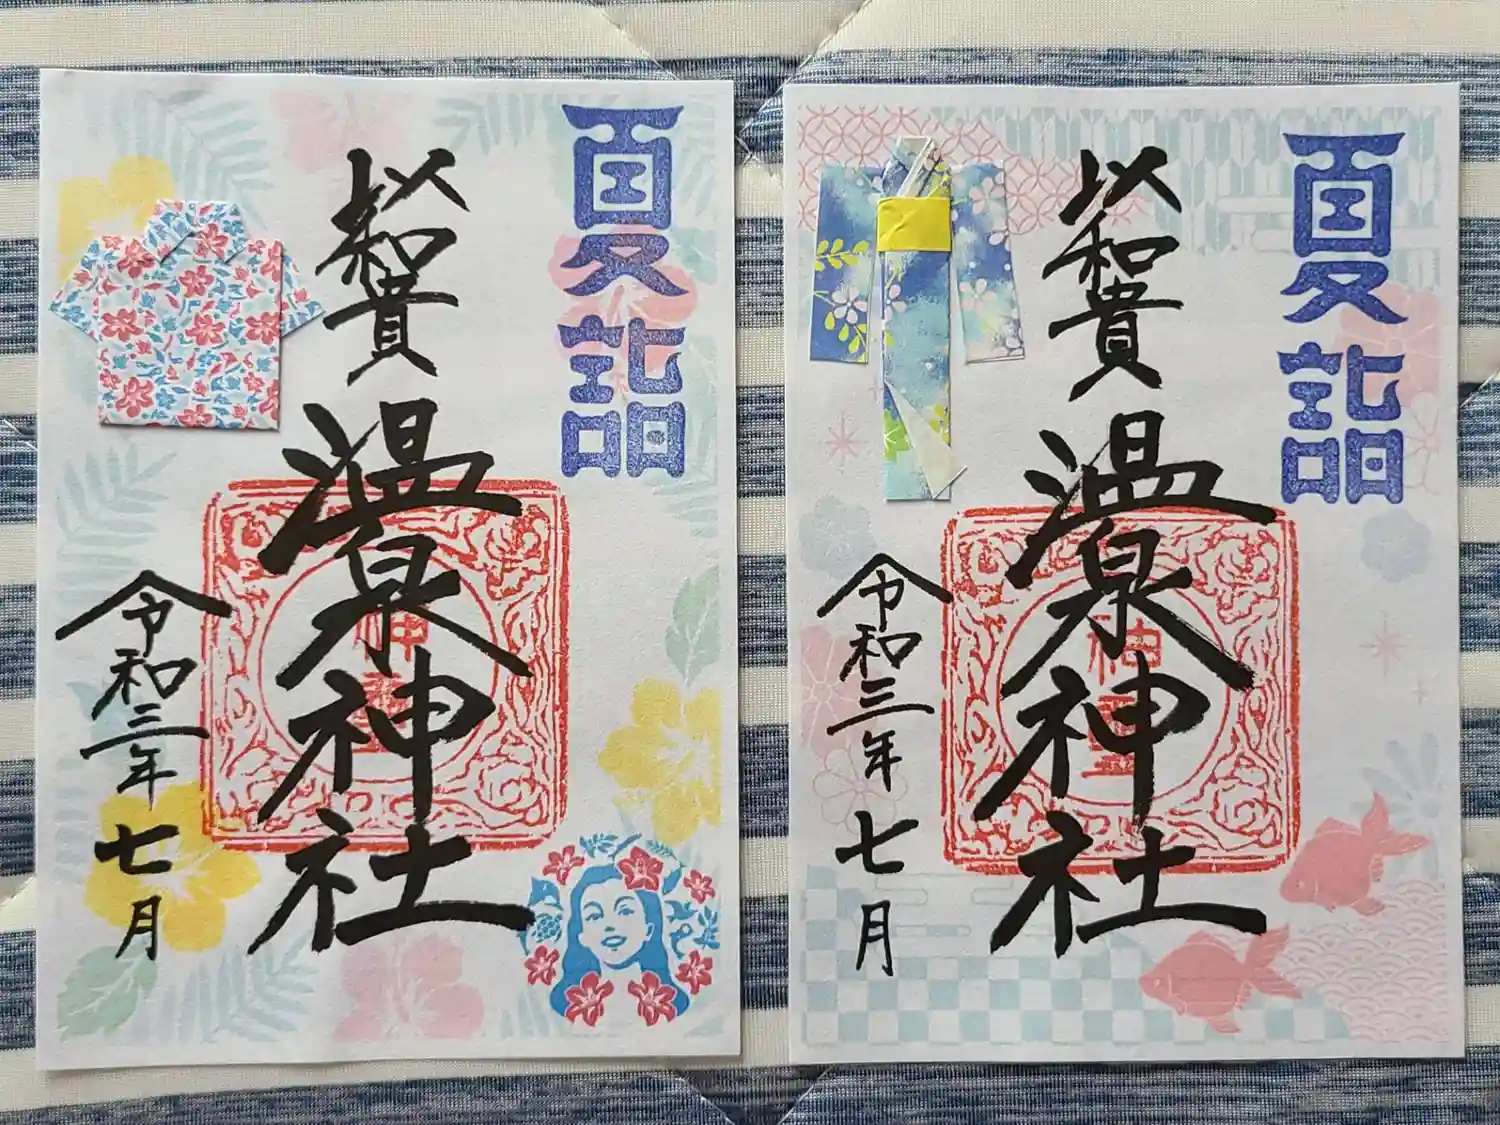 夏詣
以和貴
温泉神社
令和三年七月
夏詣
以和貴
温泉神社
令和三年七月